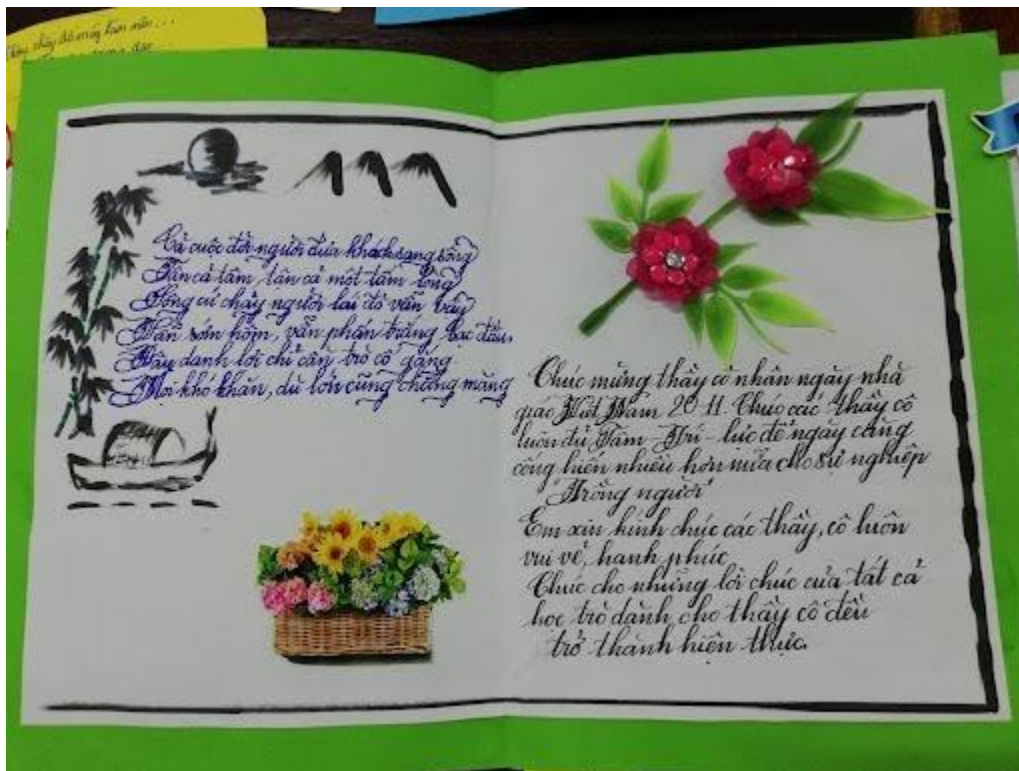 Cả cuộc đời người đưa khách sang sông
Tần cả tâm, tần cả một tấm lòng
Sông cứ chảy người lái đò vẫn vậy
Vẫn sớm hôm, vẫn phấn trắng bạc đầu
Thầy danh lợi chỉ cần trò cố gắng
Mọi khó khăn, dù lớn cũng chẳng màng
Chúc mừng thầy cô nhân ngày nhà
giáo Việt Nam 20 11. Chúc các thầy cô
luôn đủ Tâm - Trí - lực để ngày càng
cống hiến nhiều hơn nữa cho sự nghiệp
"Trồng người"
Em xin kính chúc các thầy, cô luôn
vui vẻ, hạnh phúc
Chúc cho những lời chúc của tất cả
học trò dành cho thầy cô đều
trở thành hiện thực.